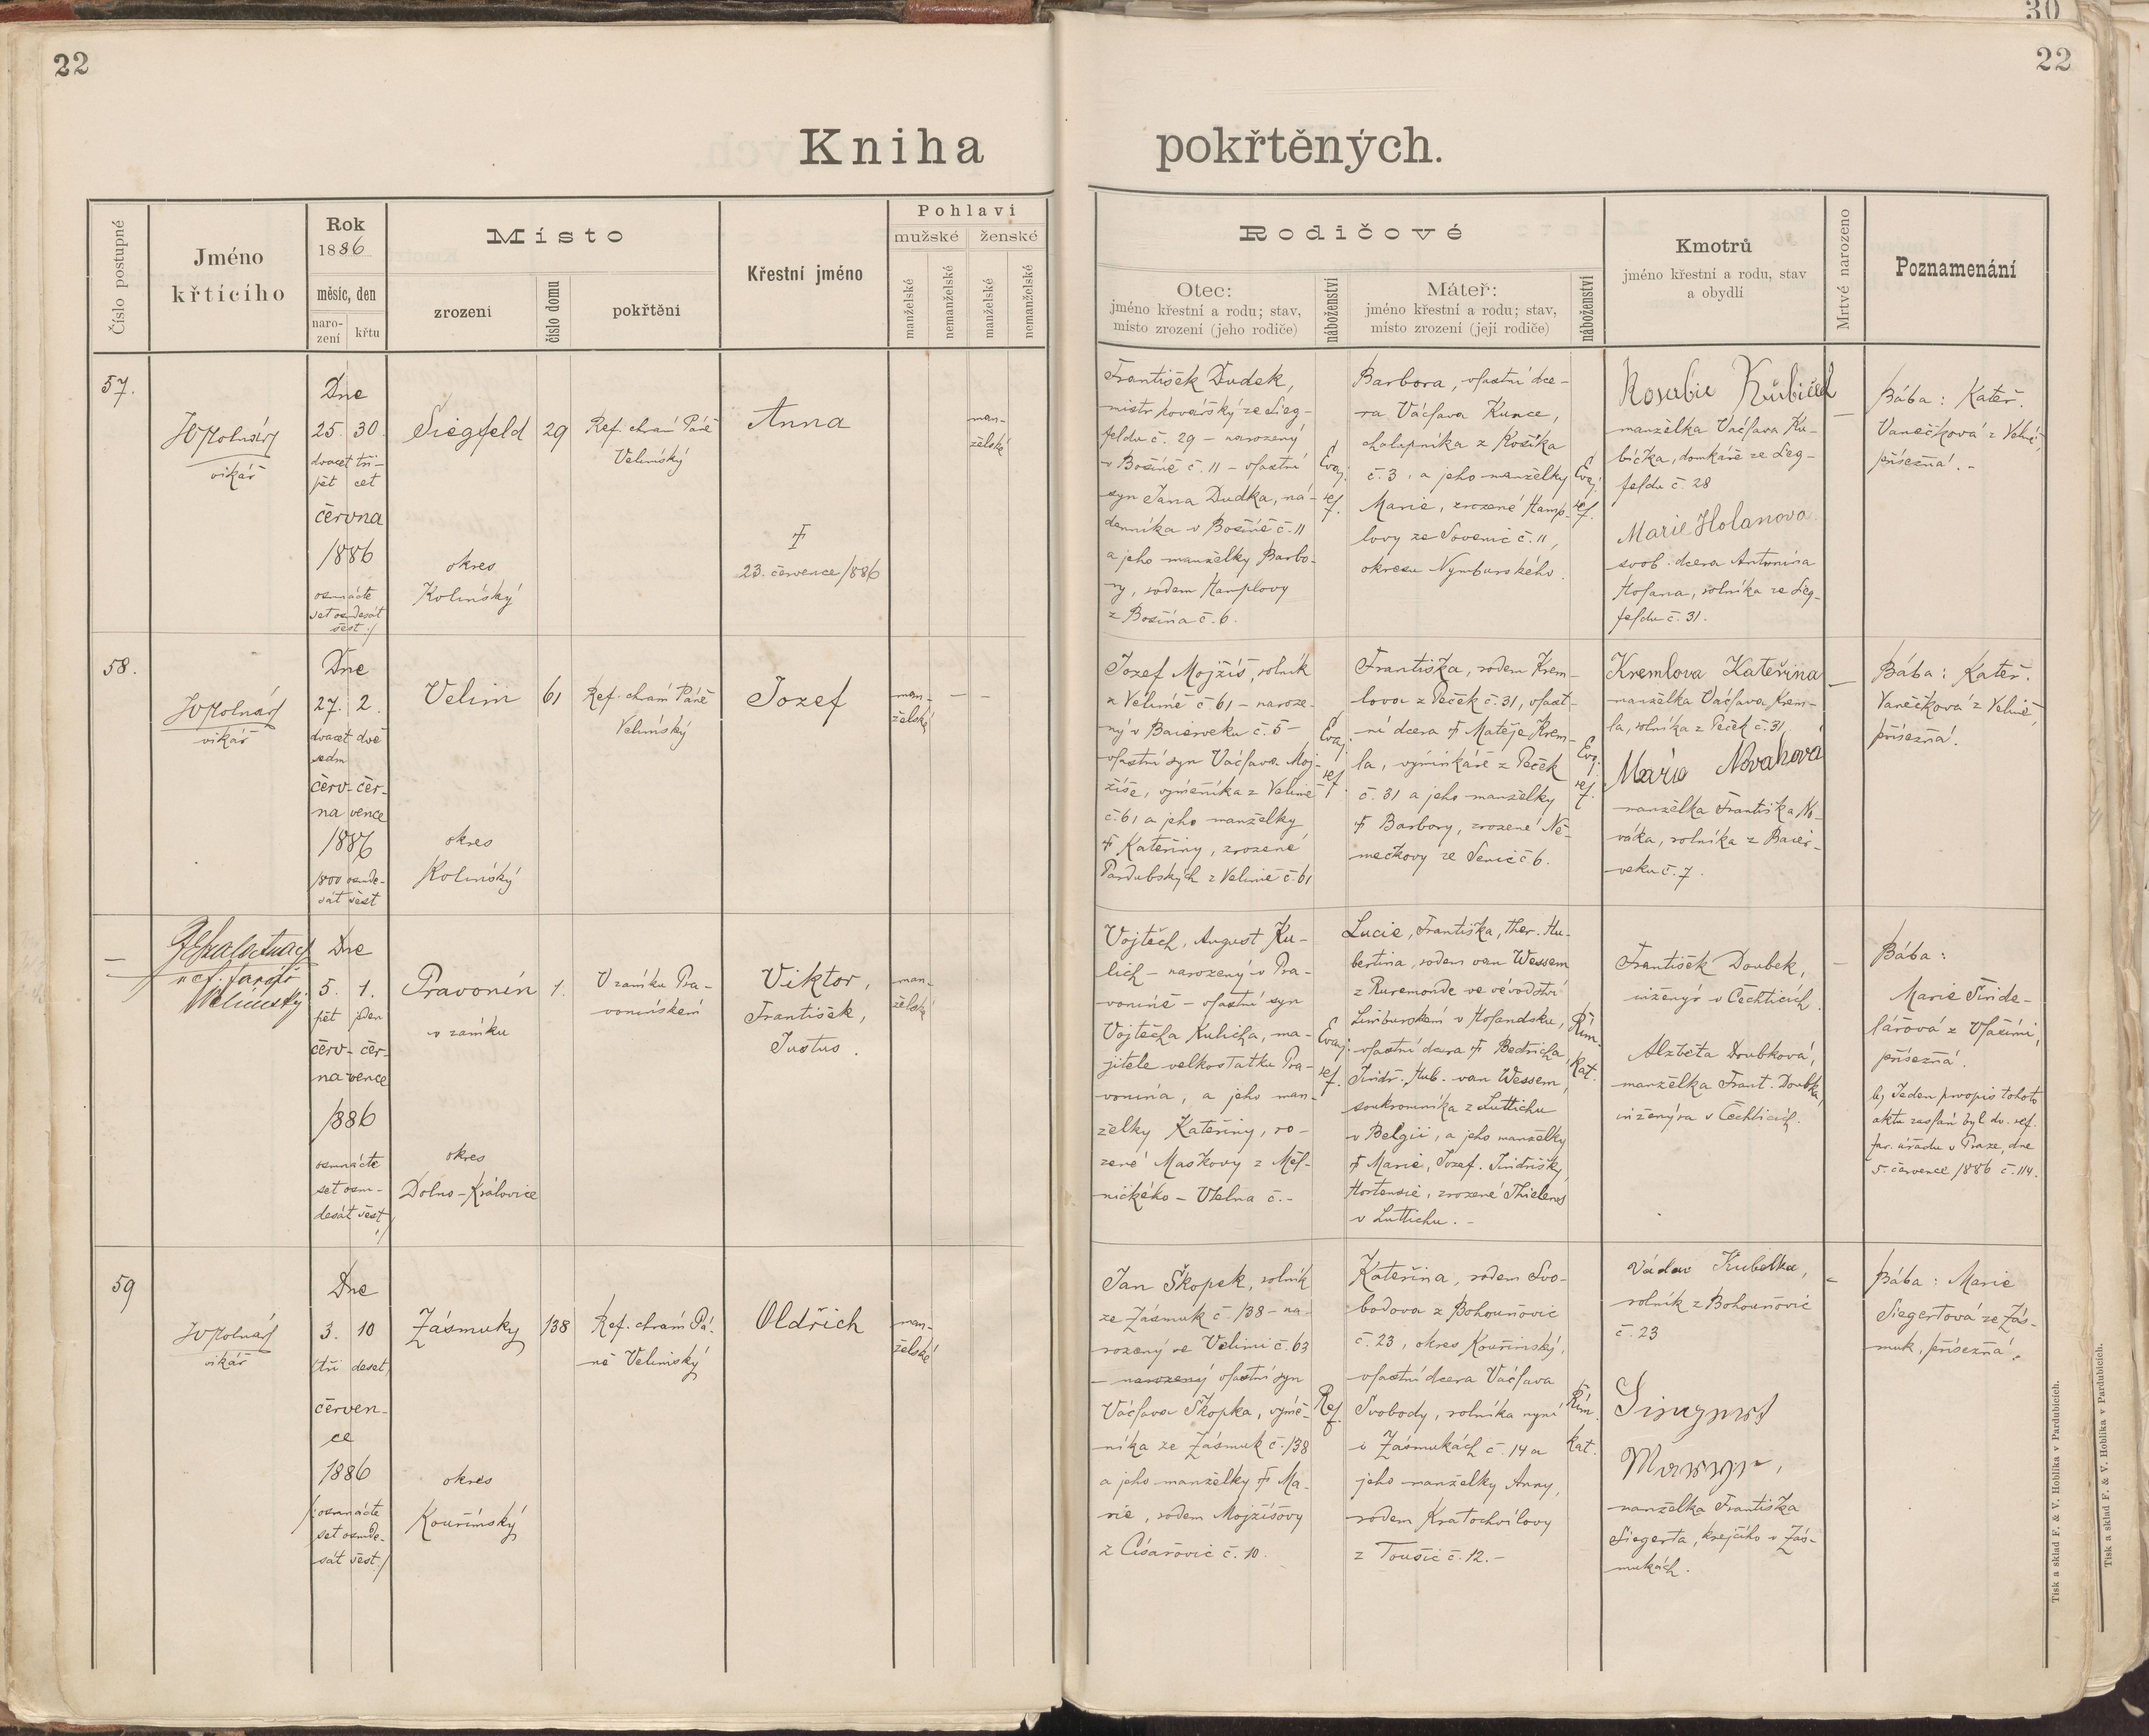 30
22
22
Kniha pokřtěných.
Číslo postupné
Jméno
křtícího
Rok
1886
měsíc, den
naro-
zení
křtu
Místo
zrození
číslo domu
pokřtění
Křestní jméno
Pohlaví
mužské
ženské
manželské
nemanželské
manželské
nemanželské
Rodičové
Otec:
jméno křestní a rodu; stav,
místo zrození (jeho rodiče)
náboženství
Máteř:
jméno křestní a rodu; stav,
místo zrození (její rodiče)
náboženství
Kmotrů
jméno křestní a rodu, stav
a obydlí
Mrtvé narozeno
Poznamenání
57.
JVMolnár
vikář
Dne
25. 30.
dvacet tři-
pět cet
června
1886
osmnácte
set osmdesát
šest /
Siegfeld
okres
Kolínský
29
Ref. chrám Páně
Velimský
Anna
†
23. července 1886
man-
želské
František Dudek,
mistr kovářský ze Sieg-
feldu č. 29 – narozený
v Bošíně č. 11 – vlastní
syn Jana Dudka, ná-
denníka v Bošíně č. 11
a jeho manželky Barbo-
ry, rodem Hamplovy
z Bošína č. 6.
Evaj.
ref.
Barbora, vlastní dce-
ra Václava Kunce,
chalupníka z Košíka
č. 3, a jeho manželky
Marie, zrozené Hamp-
lovy ze Sovenic č. 11,
okresu Nymburského.
Evaj.
ref.
Rosalie Kubíček
manželka Václava Ku-
bíčka, domkáře ze Sieg-
feldu č 28
Marie Holanova
svob. dcera Antonína
Holana, rolníka ze Sieg-
feldu č. 31.
–
Bába: Kateř.
Vanečková z Velimě,
přísežná. –
58.
JVMolnár
vikář
Dne
27. 2.
dvacet dvě
sedm
červ- čer-
na vence
1886
1800 osmde-
sát šest
Velim
okres
Kolínský
61
Ref. chrám Páně
Velimský
Jozef
man-
želské
– –
Jozef Mojžíš, rolník
z Velimě č 61 – naroze-
ný v Baierveku č. 5 –
vlastní syn Václava Moj-
žíše, výměníka z Velimě
č. 61 a jeho manželky
† Kateřiny, zrozené
Pardubských z Velimě č. 61
Evaj.
ref.
Františka, rodem Krem-
lova z Peček č. 31, vlast-
ní dcera † Matěje Krem-
la, výminkáře z Peček
č. 31 a jeho manželky
† Barbory, zrozené Ně-
mečkovy ze Senic č 6.
Evaj.
ref.
Kremlova Kateřina
manželka Václava Krem-
la, rolníka z Peček č. 31
Marie Novaková
manželka Františka No-
váka, rolníka z Baier-
veku č. 7.
–
Bába: Kateř.
Vanečková z Velimě,
přísežná.
–
ref. farář
Velimský
Dne
5. 1.
pět jeden
červ- čer-
na vence
1886
osmnácte
set osm-
desát šest
Pravonín
v zámku
okres
Dolno-Královice
1.
V zámku Pra-
vonínském
Viktor,
František,
Justus.
man-
želské
Vojtěch, August Ku-
lich – narozený v Pra-
voníně – vlastní syn
Vojtěcha Kulicha, ma-
jitele velkostatku Pra-
vonína, a jeho man-
želky Kateřiny, ro-
zené Maškovy z Měl-
nického – Vtelna č. –
Evaj.
ref.
Lucie, Františka, Ther. Hu-
bertina, rodem van Wessem
z Ruremonde ve vévodství
Limburském v Holandsku,
vlastní dcera † Bedřicha,
Jindř. Hub. van Wessem,
soukromníka z Luttichu
v Belgii, a jeho manželky
† Marie, Jozef. Jindřišky,
Hortensie, zrozené Thielens
v Luttichu. –
Řím.
kat.
František Doubek,
inženýr v Čechticích
Alžběta Doubková,
manželka Frant. Doubka,
inženýra v Čechticích.
–
Bába:
Marie Šinde-
lářová z Vlašimi,
přísežná.
b, Jeden prvopis tohoto
aktu zaslán byl dv. ref.
far. úřadu v Praze, dne
5. července 1886 č. 114.
59
JVMolnár
vikář
Dne
3. 10
(tři deset)
červen-
ce
1886
(osmnácte
set osmde-
sát šest)
Zásmuky
okres
Kouřimský
138
Ref. chrám Pá-
ně Velimský
Oldřich
man-
želské
Jan Škopek, rolník
ze Zásmuk č. 138 – na-
rozený ve Velimi č. 63
– narozený vlastní syn
Václava Škopka, výmě-
níka ze Zásmuk č. 138
a jeho manželky † Ma-
rie, rodem Mojžíšovy
z Císařovic č. 10.
Ref.
Kateřina, rodem Svo-
bodova z Bohouňovic
č. 23, okres Kouřimský,
vlastní dcera Václava
Svobody, rolníka nyní
v Zásmukách č. 14 a
jeho manželky Anny,
rodem Kratochvílovy
z Toušic č. 12. –
Řím.
kat.
Václav Kubelka,
rolník z Bohouňovic
č. 23
manželka Františka
Siegerta, krejčího v Zás-
mukách.
–
Bába: Marie
Siegertová ze Zás-
muk, přísežná.
Tisk a sklad F. & V. Hoblíka v Pardubicích.
Tisk a sklad F. & V. Hoblíka v Pardubicích.